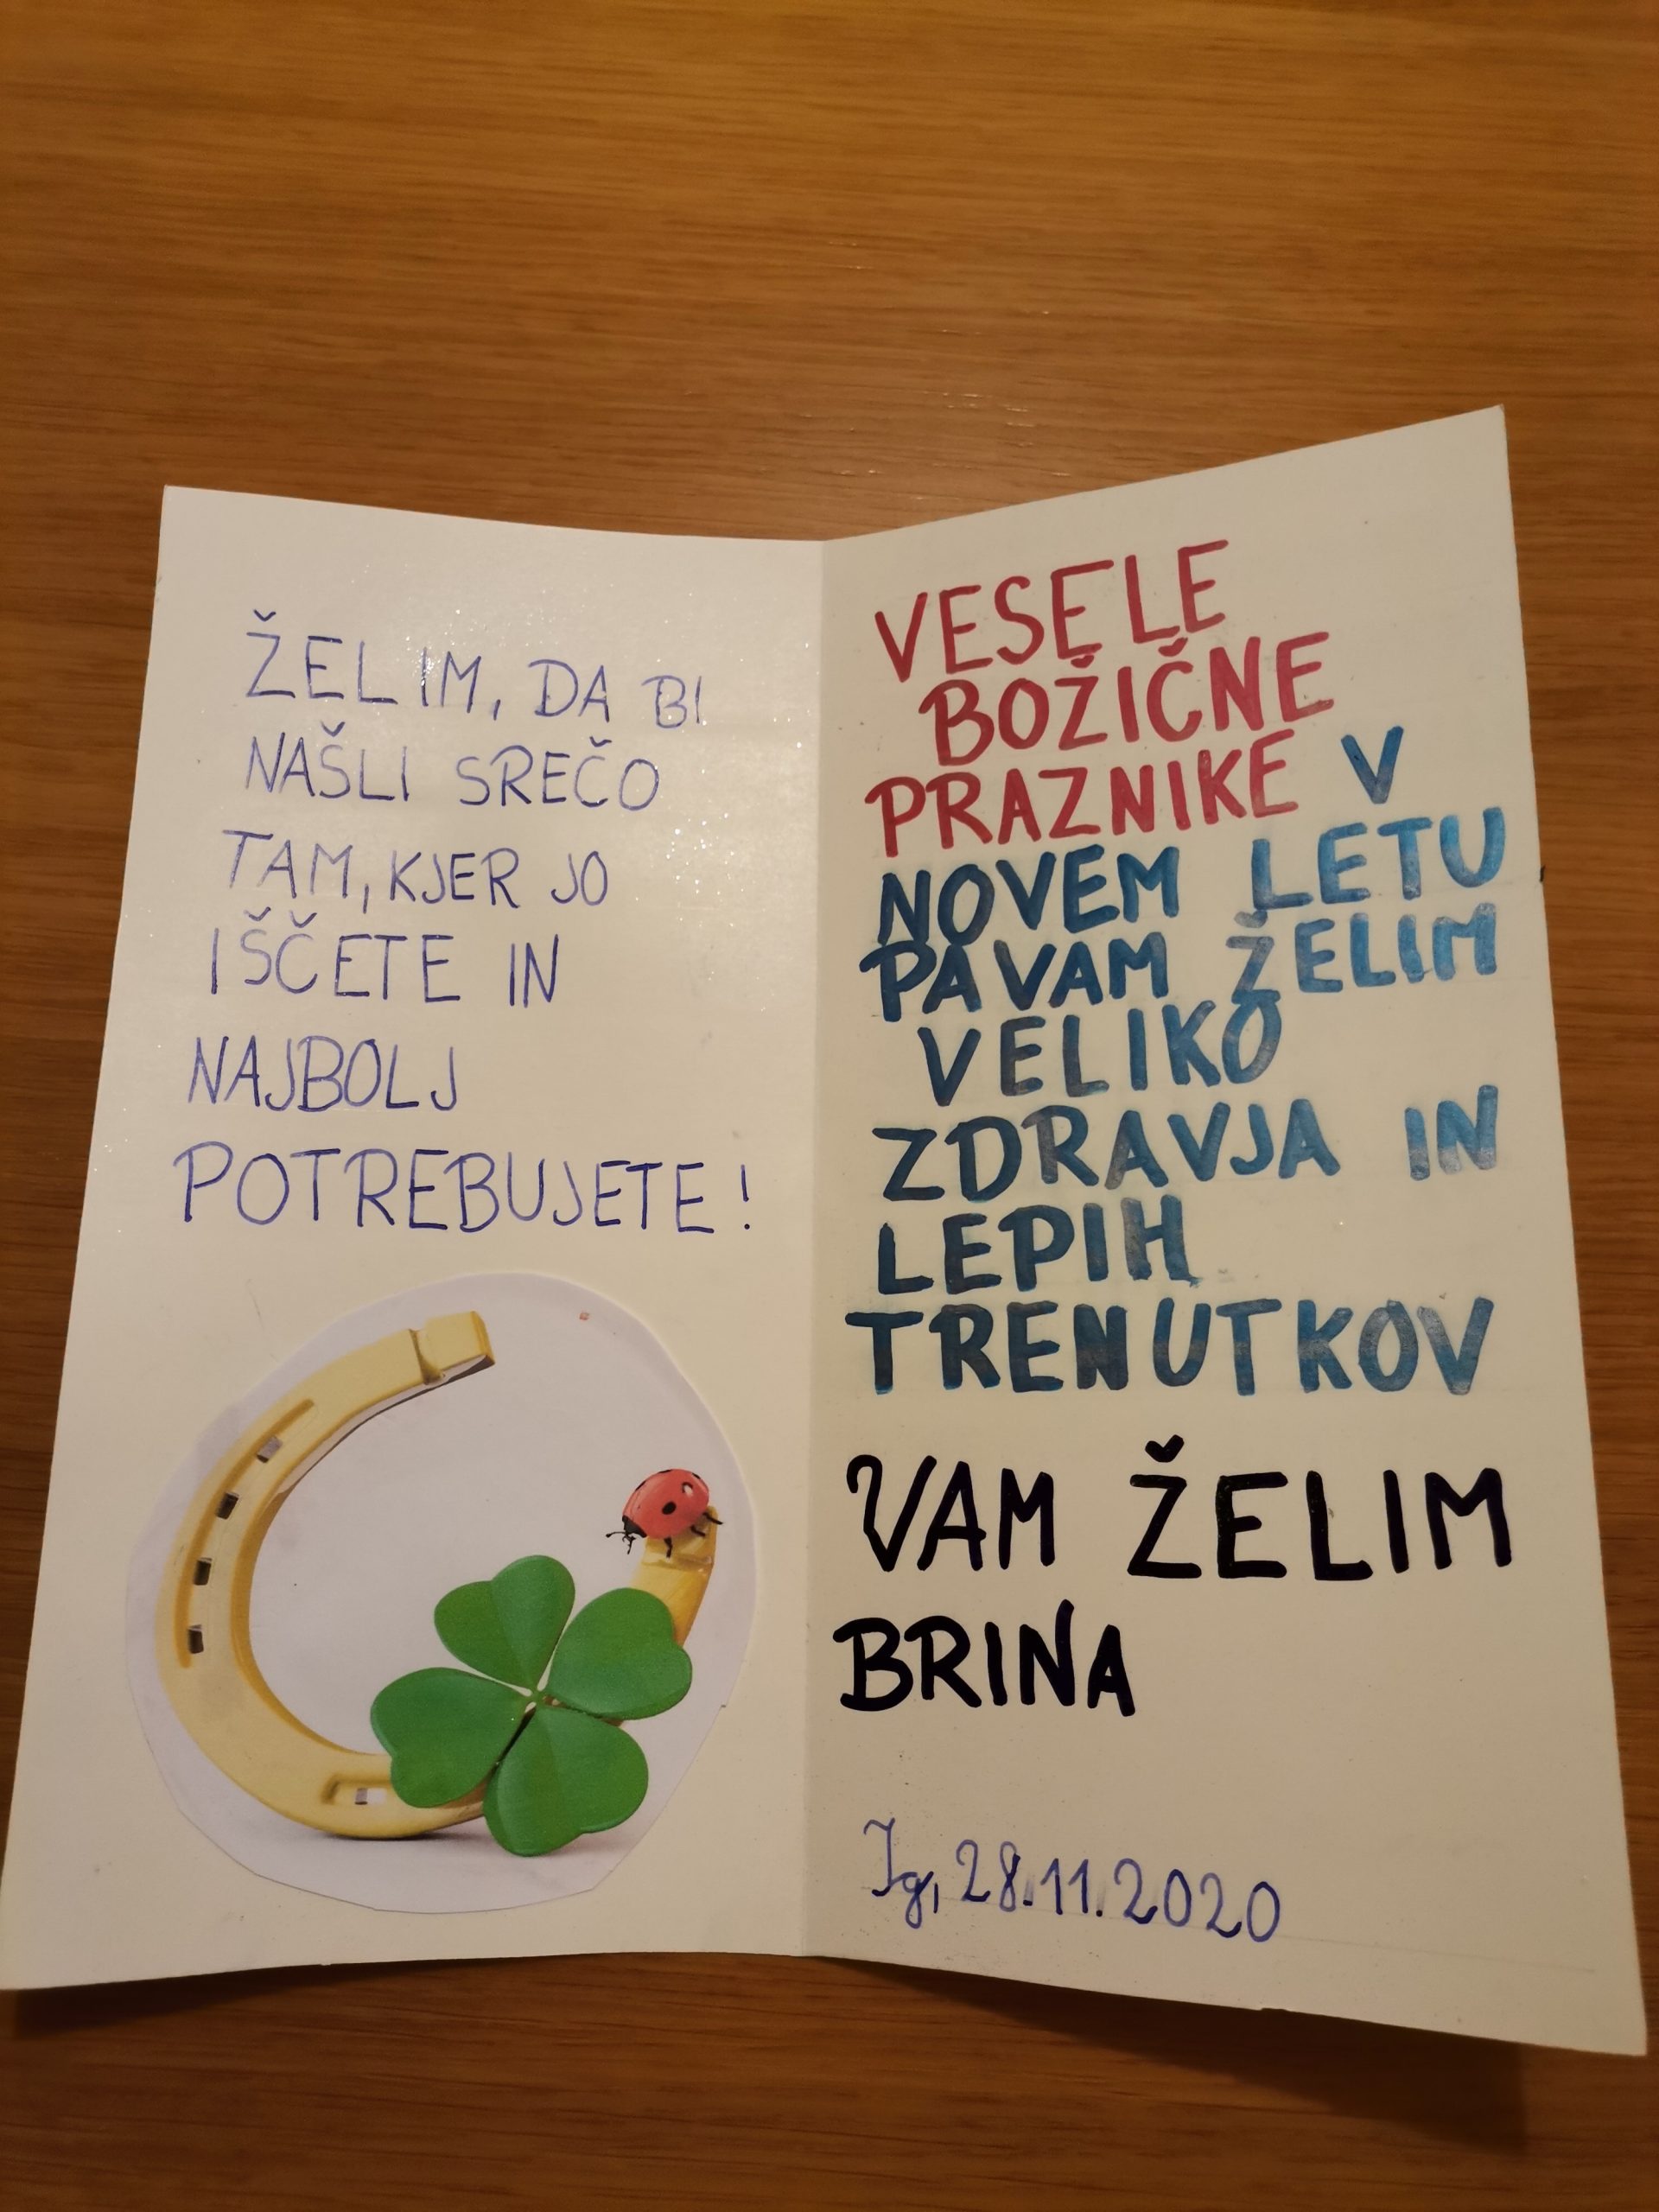 ŽELIM, DA BI
NAŠLI SREČO
TAM, KJER JO
IŠČETE IN
NAJBOLJ
POTREBUJETE!
VESELE
BOŽIČNE
PRAZNIKE V
NOVEM LETU
PA VAM ŽELIM
VELIKO
ZDRAVJA IN
LEPIH
TRENUTKOV
VAM ŽELIM
BRINA
Ig, 28.11.2020